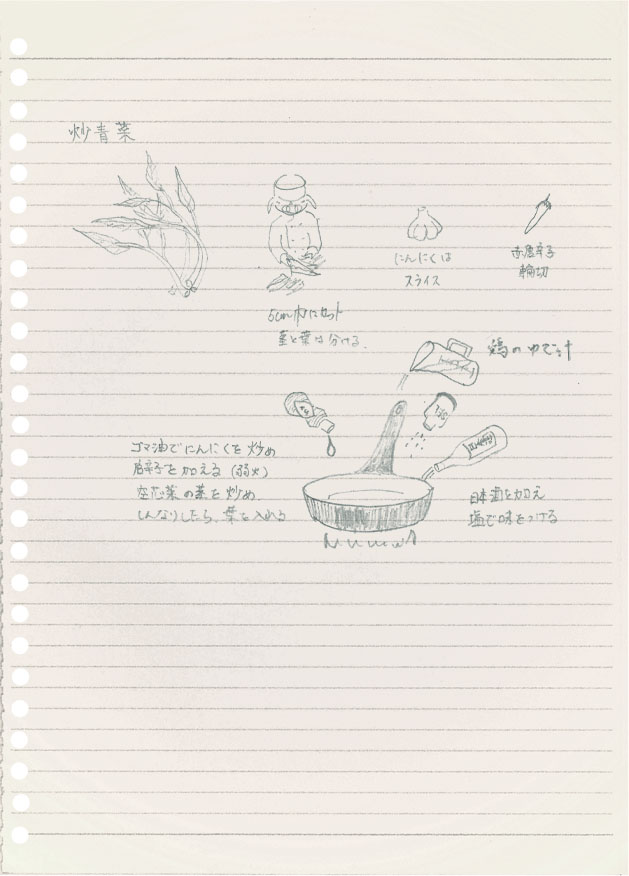 炒青菜
にんにくは
スライス
赤唐辛子
輪切
5cm巾にカット
茎と葉は分ける。
鶏のゆで汁
ゴマ油でにんにくを炒め
唐辛子を加える(弱火)
空芯菜の茎を炒め
しんなりしたら、葉を入れる
日本酒を加え
塩で味をつける